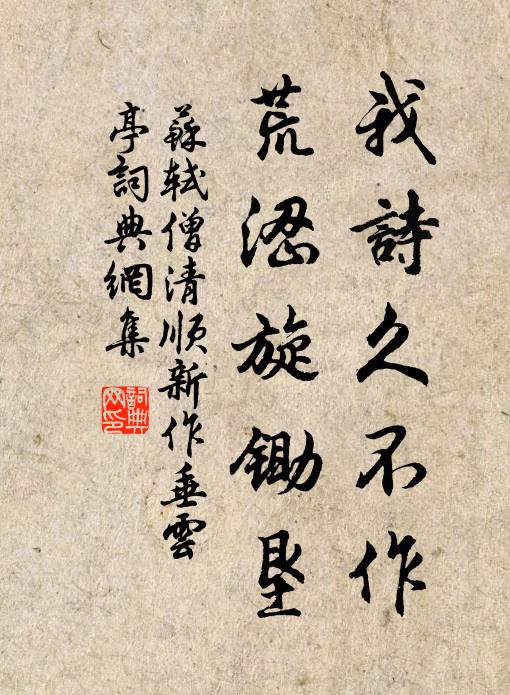 我詩久不作
荒涩旋鋤垦
蘇軾僧清順新作垂雲
亭詞典網集
詞典网印